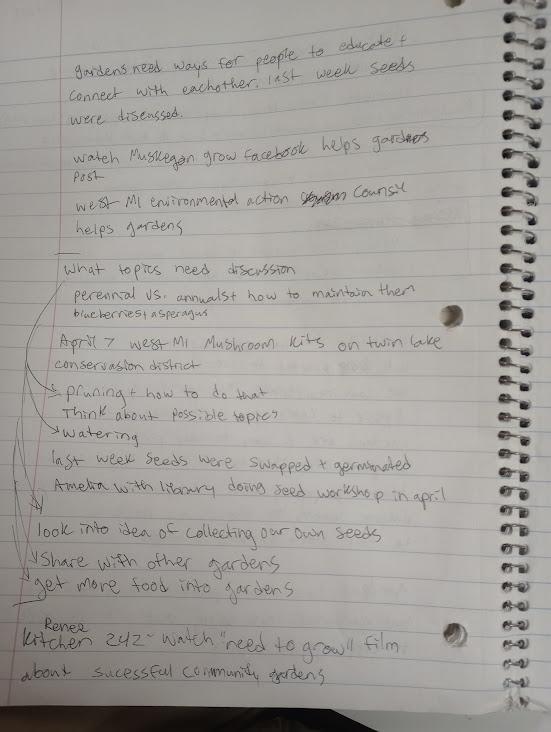 gardens need ways for people to educate +
connect with eachother. last week seeds
were discussed.
watch Muskegon grow facebook helps gardens
post
west MI environmental action Counsil
helps gardens
what topics need discussion
perennial vs. annuals + how to maintain them
blueberries + asparagus
April 7 west MI Mushroom kits on twin lake
conservasion district
pruning + how to do that
Think about possible topics
watering
last week seeds were swapped + germinated
Amelia with library doing seed workshop in april
look into idea of collecting our own seeds
share with other gardens
get more food into gardens
Renee
Kitchen 242 - watch "need to grow" film
about sucessful community gardens